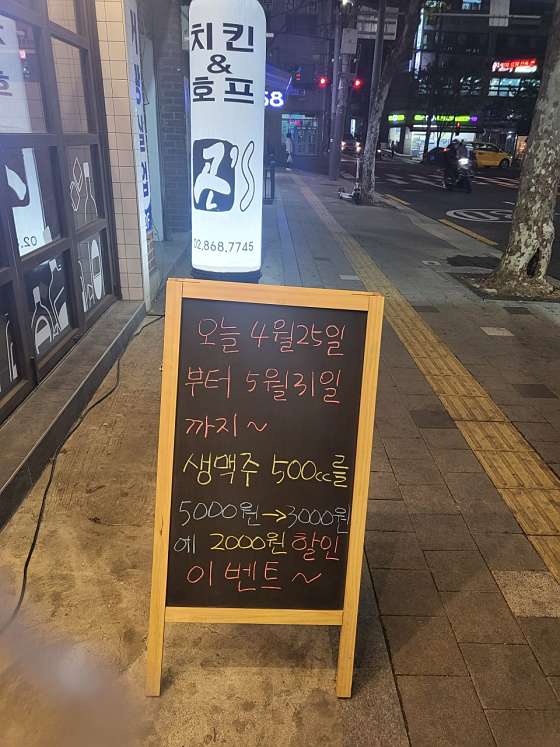 치킨
&
호프
's
02.868.7745
오늘 4월25일
부터 5월31일
까지~
생맥주 500cc를
5000원→3000원
에 2000원 할인
이벤트~